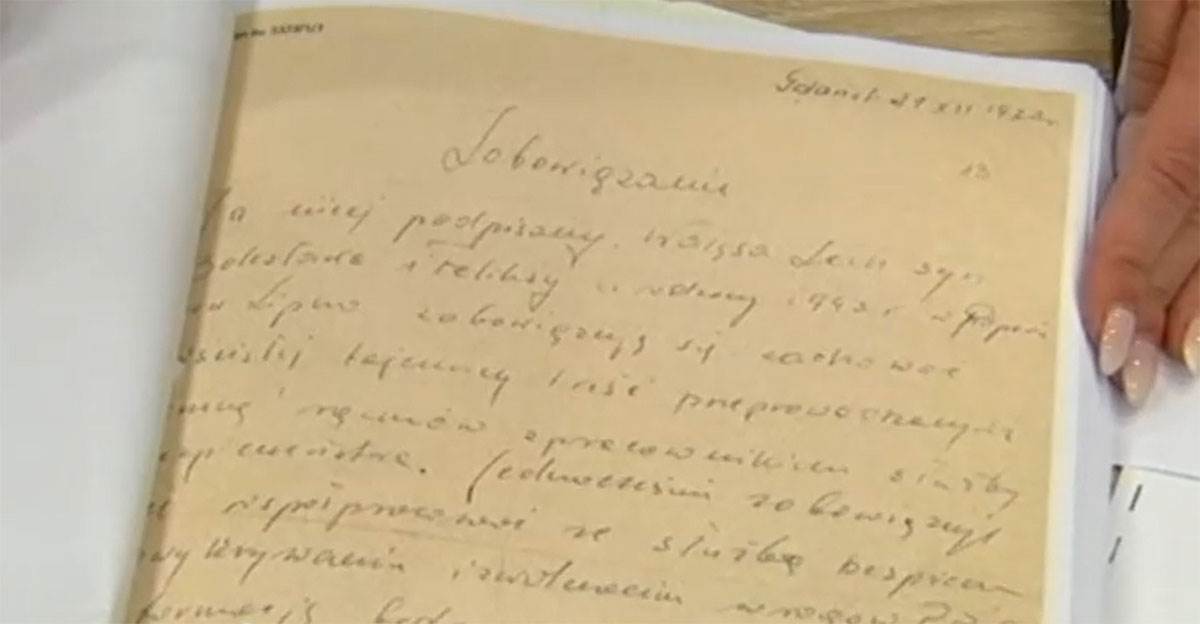 Gdańsk 21 XII
13
Zobowiązanie
Ja niżej podpisany, Wałęsa Lech syn
Bolesława i Feliksy urodzony 1943 r w
Lipno zobowiązuję się zachować
ścisłej tajemnicy treść przeprowadzonych
mną rozmów z pracownikiem służby
Jednocześnie zobowiązuję
współpracować ze służbą
wykrywaniu i zwalczaniu wrogów